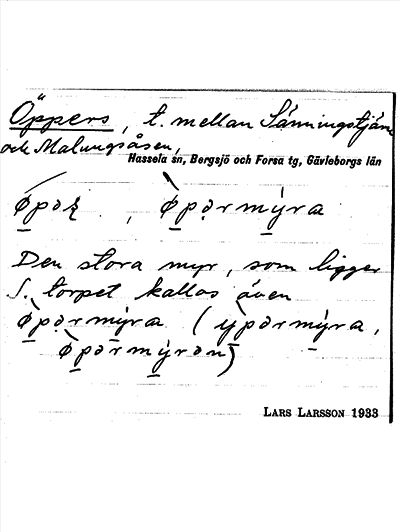 Öppers, t. mellan Sänningstjärn
och Malungsåsen,
Hassela sn, Bergsjö och Forsa tg, Gävleborgs län
Den stora myr, som ligger
S. torpet kallas även
LARS LARSSON 1933